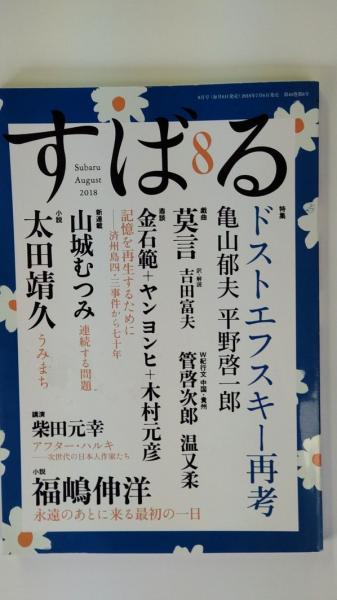 8月号(毎月6日発売)2018年7月6日発売 第40巻第8号
すばる
8
Subaru
August
2018
特集
ドストエフスキー再考
亀山郁夫 平野啓一郎
戯曲
莫言
訳・解説
吉田富夫
W紀行文 中国・貴州
管啓次郎 温又柔
鼎談
金石範+ヤンヨンヒ+木村元彦
記憶を再生するために
——済州島四・三事件から七十年
新連載
山城むつみ
連続する問題
小説
太田靖久
うみまち
講演
柴田元幸
アフター・ハルキ
——次世代の日本人作家たち
小説
福嶋伸洋
永遠のあとに来る最初の一日